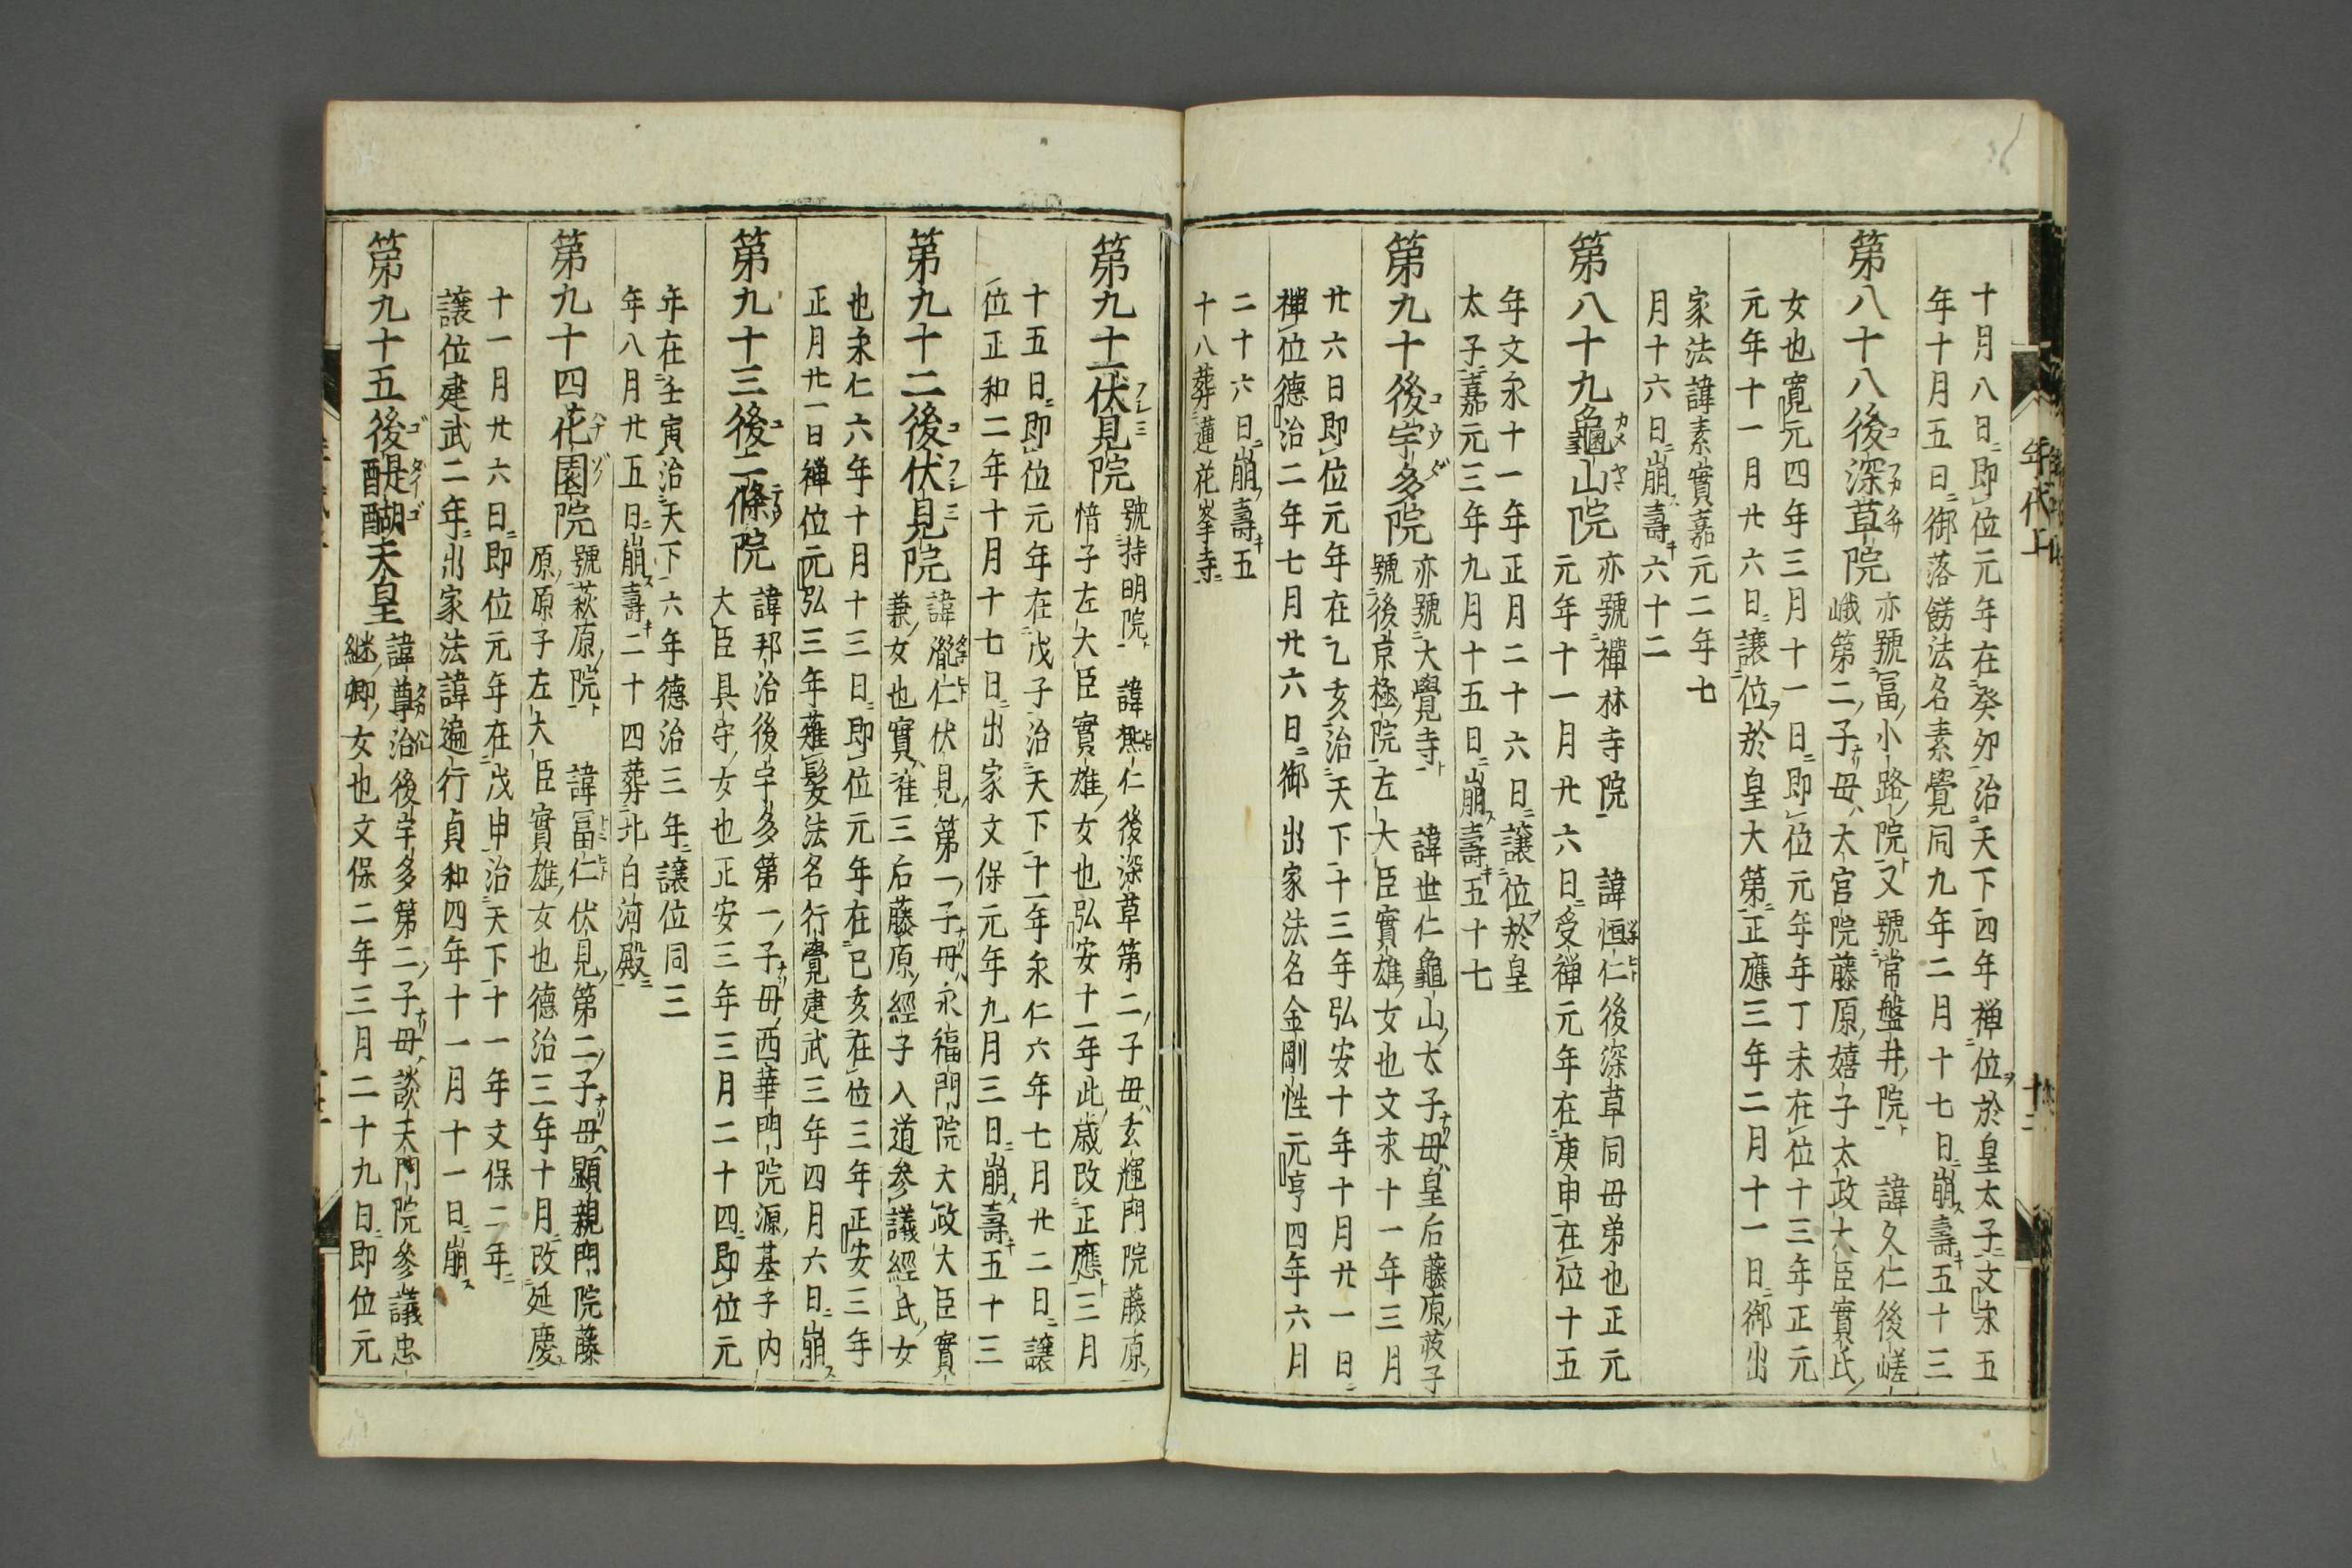 十月八日即位元年在癸夘治天下四年禅位於皇太子文永五
年十月五日御落餝法名素覺同九年二月十七日崩壽五十三
第八十八後深草院
亦號冨小路院又號常盤井院 諱久仁後嵯
峨第二子母太宮院藤原嬉子太政大臣實氏
女也寛元四年三月十一日即位元年丁未在位十三年正元
元年十一月廿六日譲位於皇大第正應三年二月十一日御出
家法諱素實嘉元二年七
月十六日崩壽六十二
第八十九龜山院
亦號禪林寺院 諱恒仁後深草同母弟也正元
元年十一月廿六日受禅元年在庚申在位十五
年文永十一年正月二十六日譲位於皇
太子嘉元三年九月十五日崩壽五十七
第九十後宇多院
亦號大覺寺 諱世仁龜山太子母皇后藤原荻子
號後京極院左大臣實雄女也文永十一年三月
廿六日即位元年在乙亥治天下十三年弘安十年十月廿一日
禪位德治二年七月廿六日御出家法名金剛性元亨四年六月
二十六日崩壽五
十八葬蓮花峯寺
第九十一伏見院
號持明院 諱熈仁後深草第二子母玄輝門院藤原
愔子左大臣實雄女也弘安十一年此歳改正應三月
十五日即位元年在戊子治天下十一年永仁六年七月廿二日譲
位正和二年十月十七日出家文保元年九月三日崩壽五十三
第九十二後伏見院
諱胤仁伏見第一子母永福門院大政大臣實
兼女也實准三后藤原經子入道参議經氏女
也永仁六年十月十三日即位元年在己亥在位三年正安三年
正月廿一日禅位元弘三年薙髪法名行覺建武三年四月六日崩
第九十三後二條院
諱邦治後宇多第一子母西華門院源基子内
大臣具守女也正安三年三月二十四即位元
年在壬寅治天下六年德治三年譲位同三
年八月廿五日崩壽二十四葬北白河殿
第九十四花園院
號萩原院 諱冨仁伏見第二子母顕親門院藤
原原子左大臣實雄女也德治三年十月改延慶
十一月廿六日即位元年在戊申治天下十一年文保二年
譲位建武二年出家法諱遍行貞和四年十一月十一日崩
第九十五後醍醐天皇
諱尊治後宇多第二子母談天門院參議忠
継卿女也文保二年三月二十九日即位元
年代上
十二